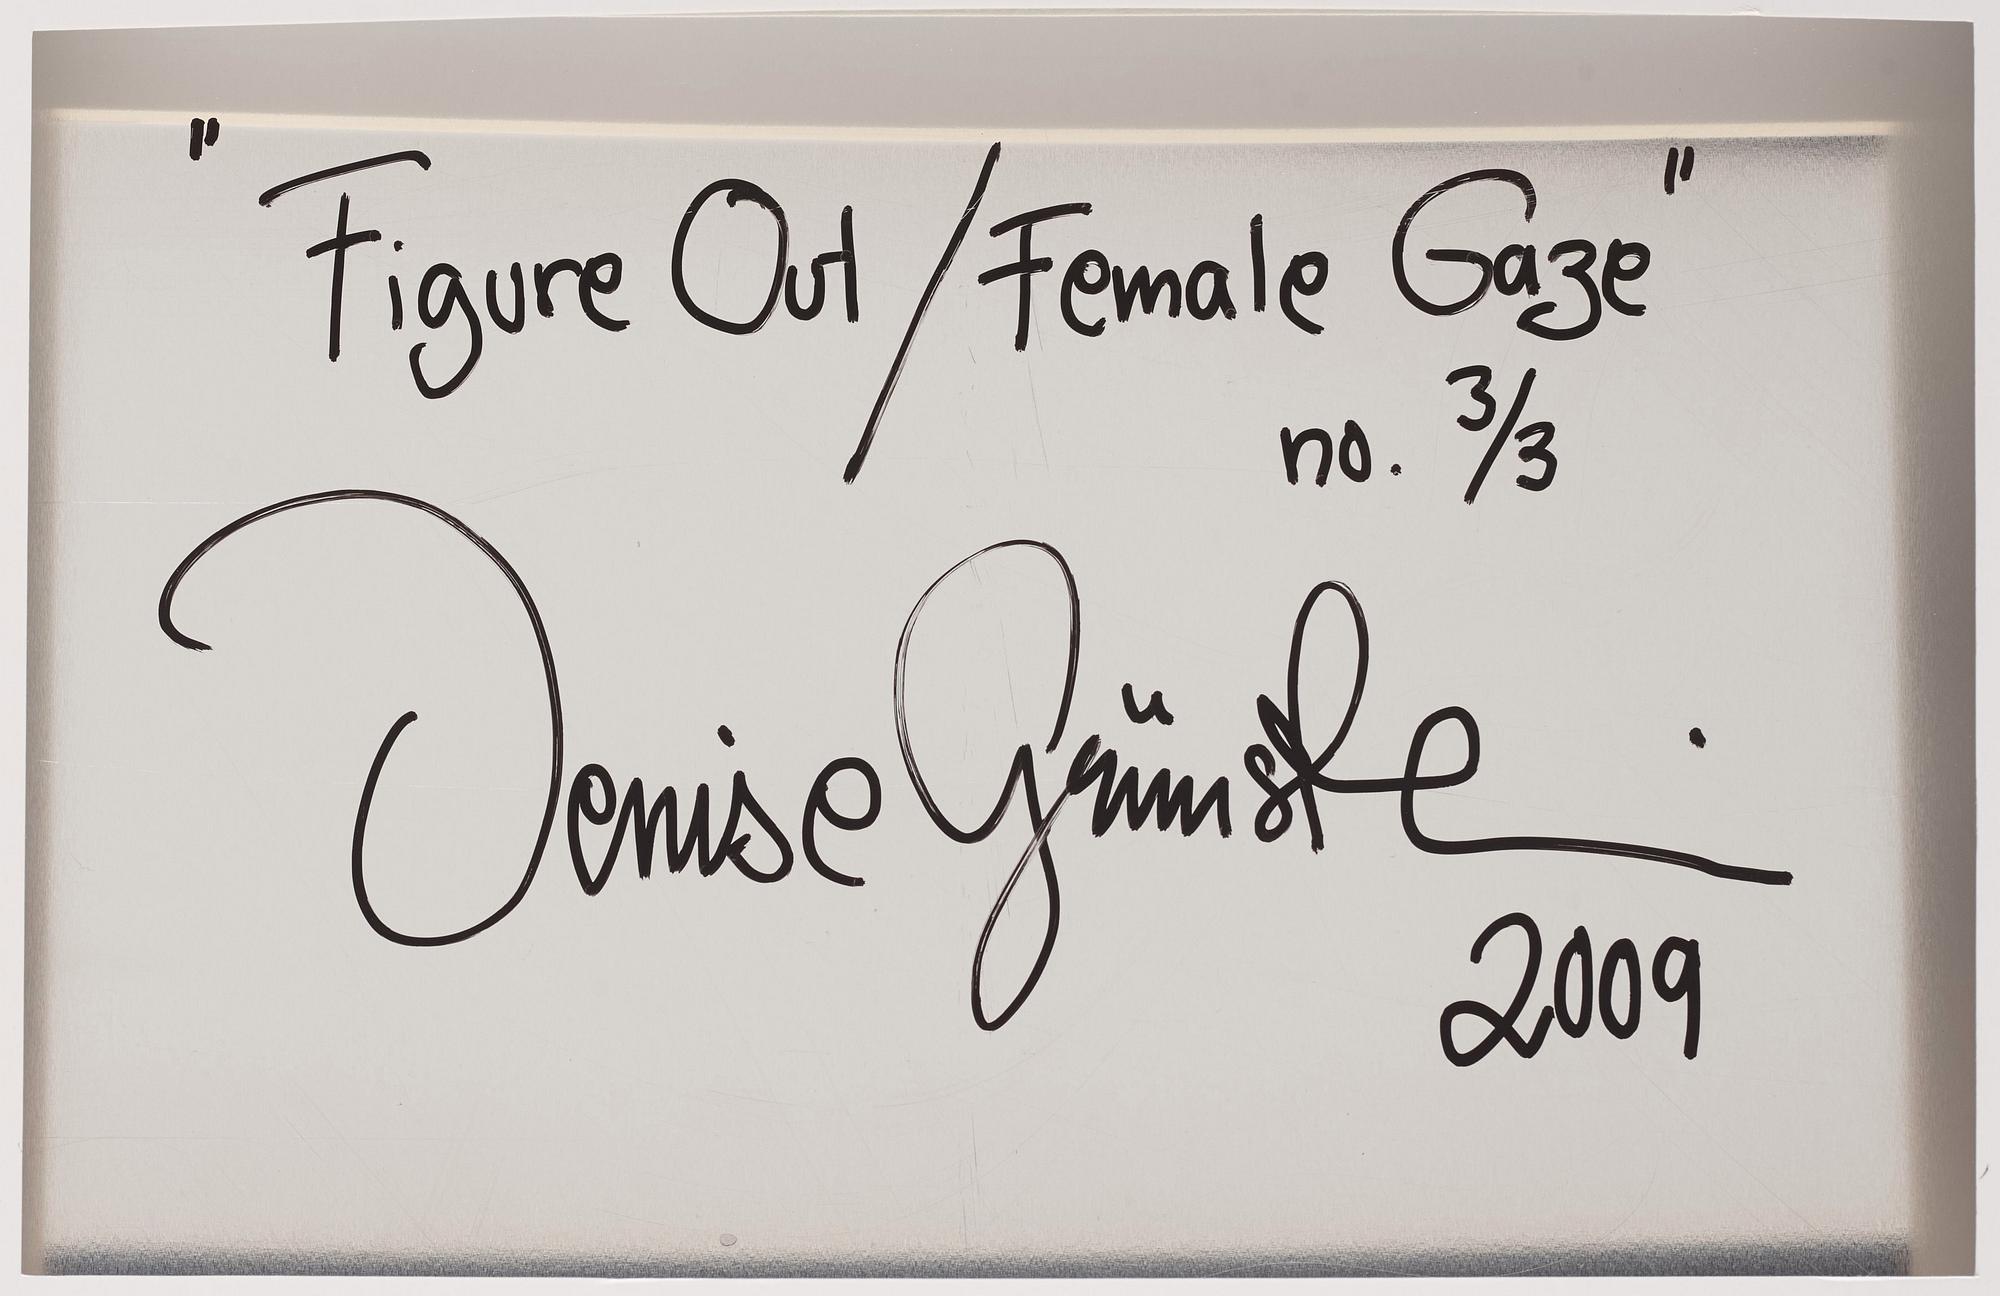 "Figure Out / Female Gaze"
no. 3/3
Denise Grünstein
2009